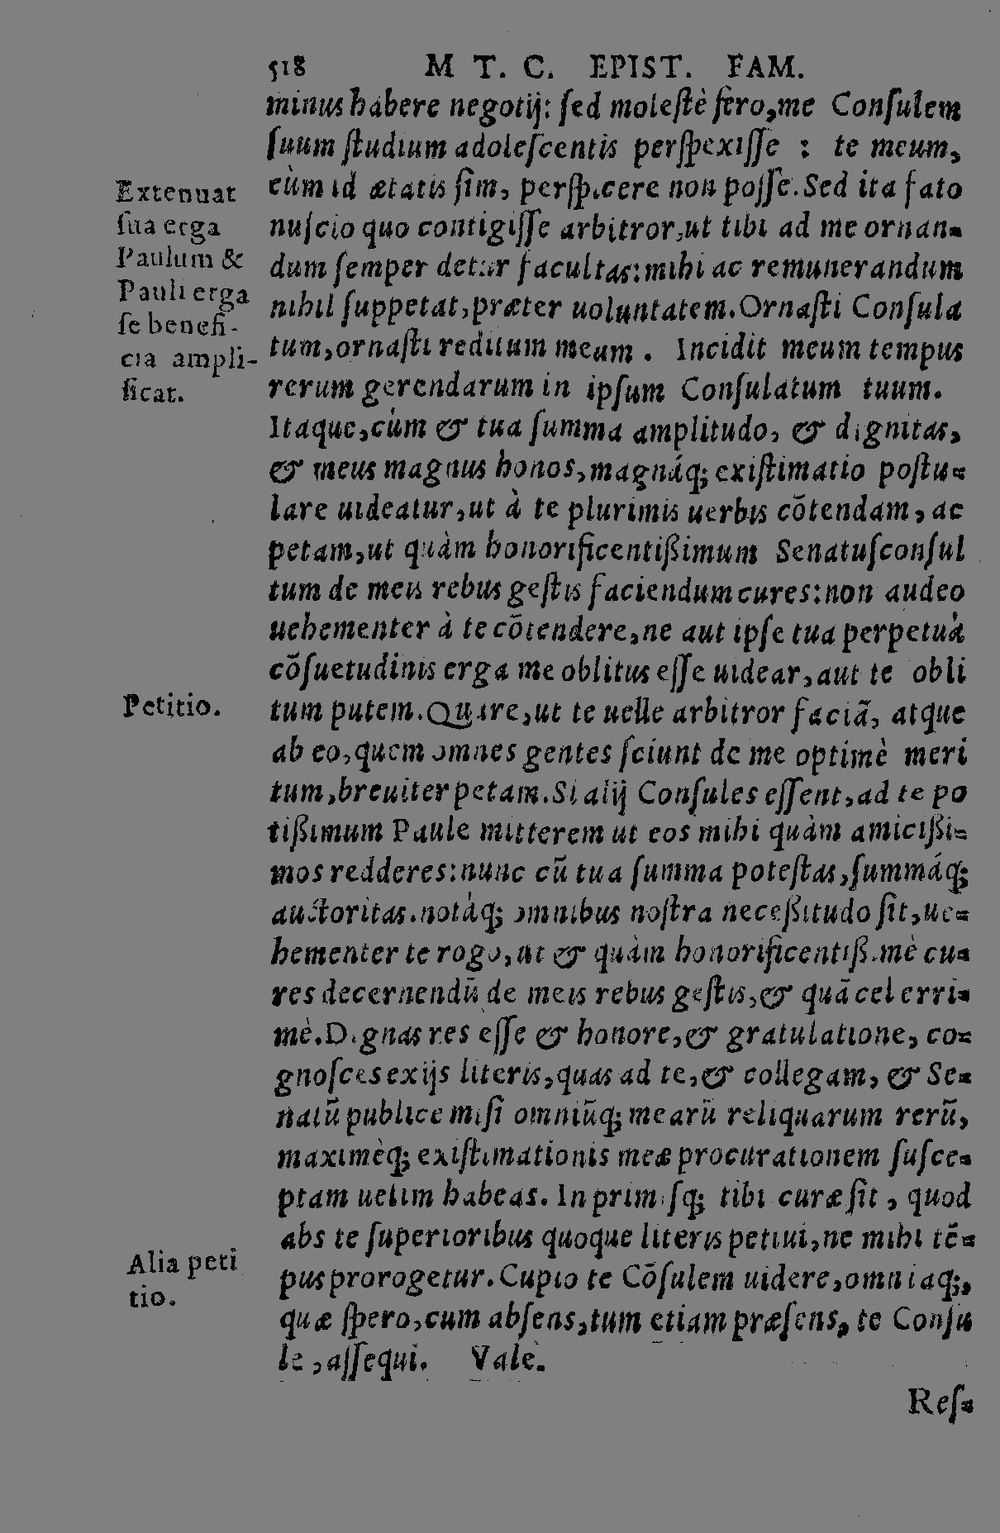 518 M T. C. EPIST. FAM.
minus habere negotij: ſed moleſtè fero,me Conſulem
ſuum ſtudium adoleſcentis perſpexiſſe : te meum,
cùm id ætatis ſim, perſpicere non poſſe.Sed ita fato
nuſcio quo contigiſſe arbitror,ut tibi ad me ornan-
dum ſemper detur facultas:mihi ac remunerandum
nihil ſuppetat,præter uoluntatem.Ornaſti Conſula
tum,ornaſti reditum meum . Incidit meum tempus
rerum gerendarum in ipſum Conſulatum tuum.
Itaque,cùm & tua ſumma amplitudo, & dignitas,
& meus magnus honos,magnáq; exiſtimatio poſtu-
lare uideatur,ut à te plurimis uerbis cõtendam, ac
petam,ut quàm honorificentißimum Senatuſconſul
tum de meis rebus geſtis faciendum cures:non audeo
uehementer à te cõtendere,ne aut ipſe tua perpetuà
cõſuetudinis erga me oblitus eſſe uidear,aut te obli
tum putem.Quare,ut te uelle arbitror faciã, atque
ab eo,quem omnes gentes ſciunt de me optimè meri
tum,breuiter petam.Si alij Conſules eſſent,ad te po
tißimum Paule mitterem ut eos mihi quàm amicißi-
mos redderes:nunc cũ tua ſumma poteſtas,ſummáq;
auctoritas.notáq; omnibus noſtra neceßitudo ſit,ue-
hementer te rogo,ut & quàm honorificentiß.mè cu-
res decernendũ de meis rebus geſtis,& quã celerri-
mè.Dignas res eſſe & honore,& gratulatione, co-
gnoſces ex ijs literis,quas ad te,& collegam, & Se-
natũ publice miſi omniũq; mearũ reliquarum rerũ,
maximèq; exiſtimationis meæ procurationem ſuſce-
ptam uelim habeas. In primiſq; tibi curæ ſit , quod
abs te ſuperioribus quoque literis petiui,ne mihi tẽ-
pus prorogetur.Cupio te Cõſulem uidere,omniaq;,
quæ ſpero,cum abſens,tum etiam præſens, te Conſu
le ,aſſequi. Vale.
Reſ-
Extenuat
ſua erga
Paulum &
Pauli erga
ſe benefi-
cia ampli-
ficat.
Petitio.
Alia peti
tio.